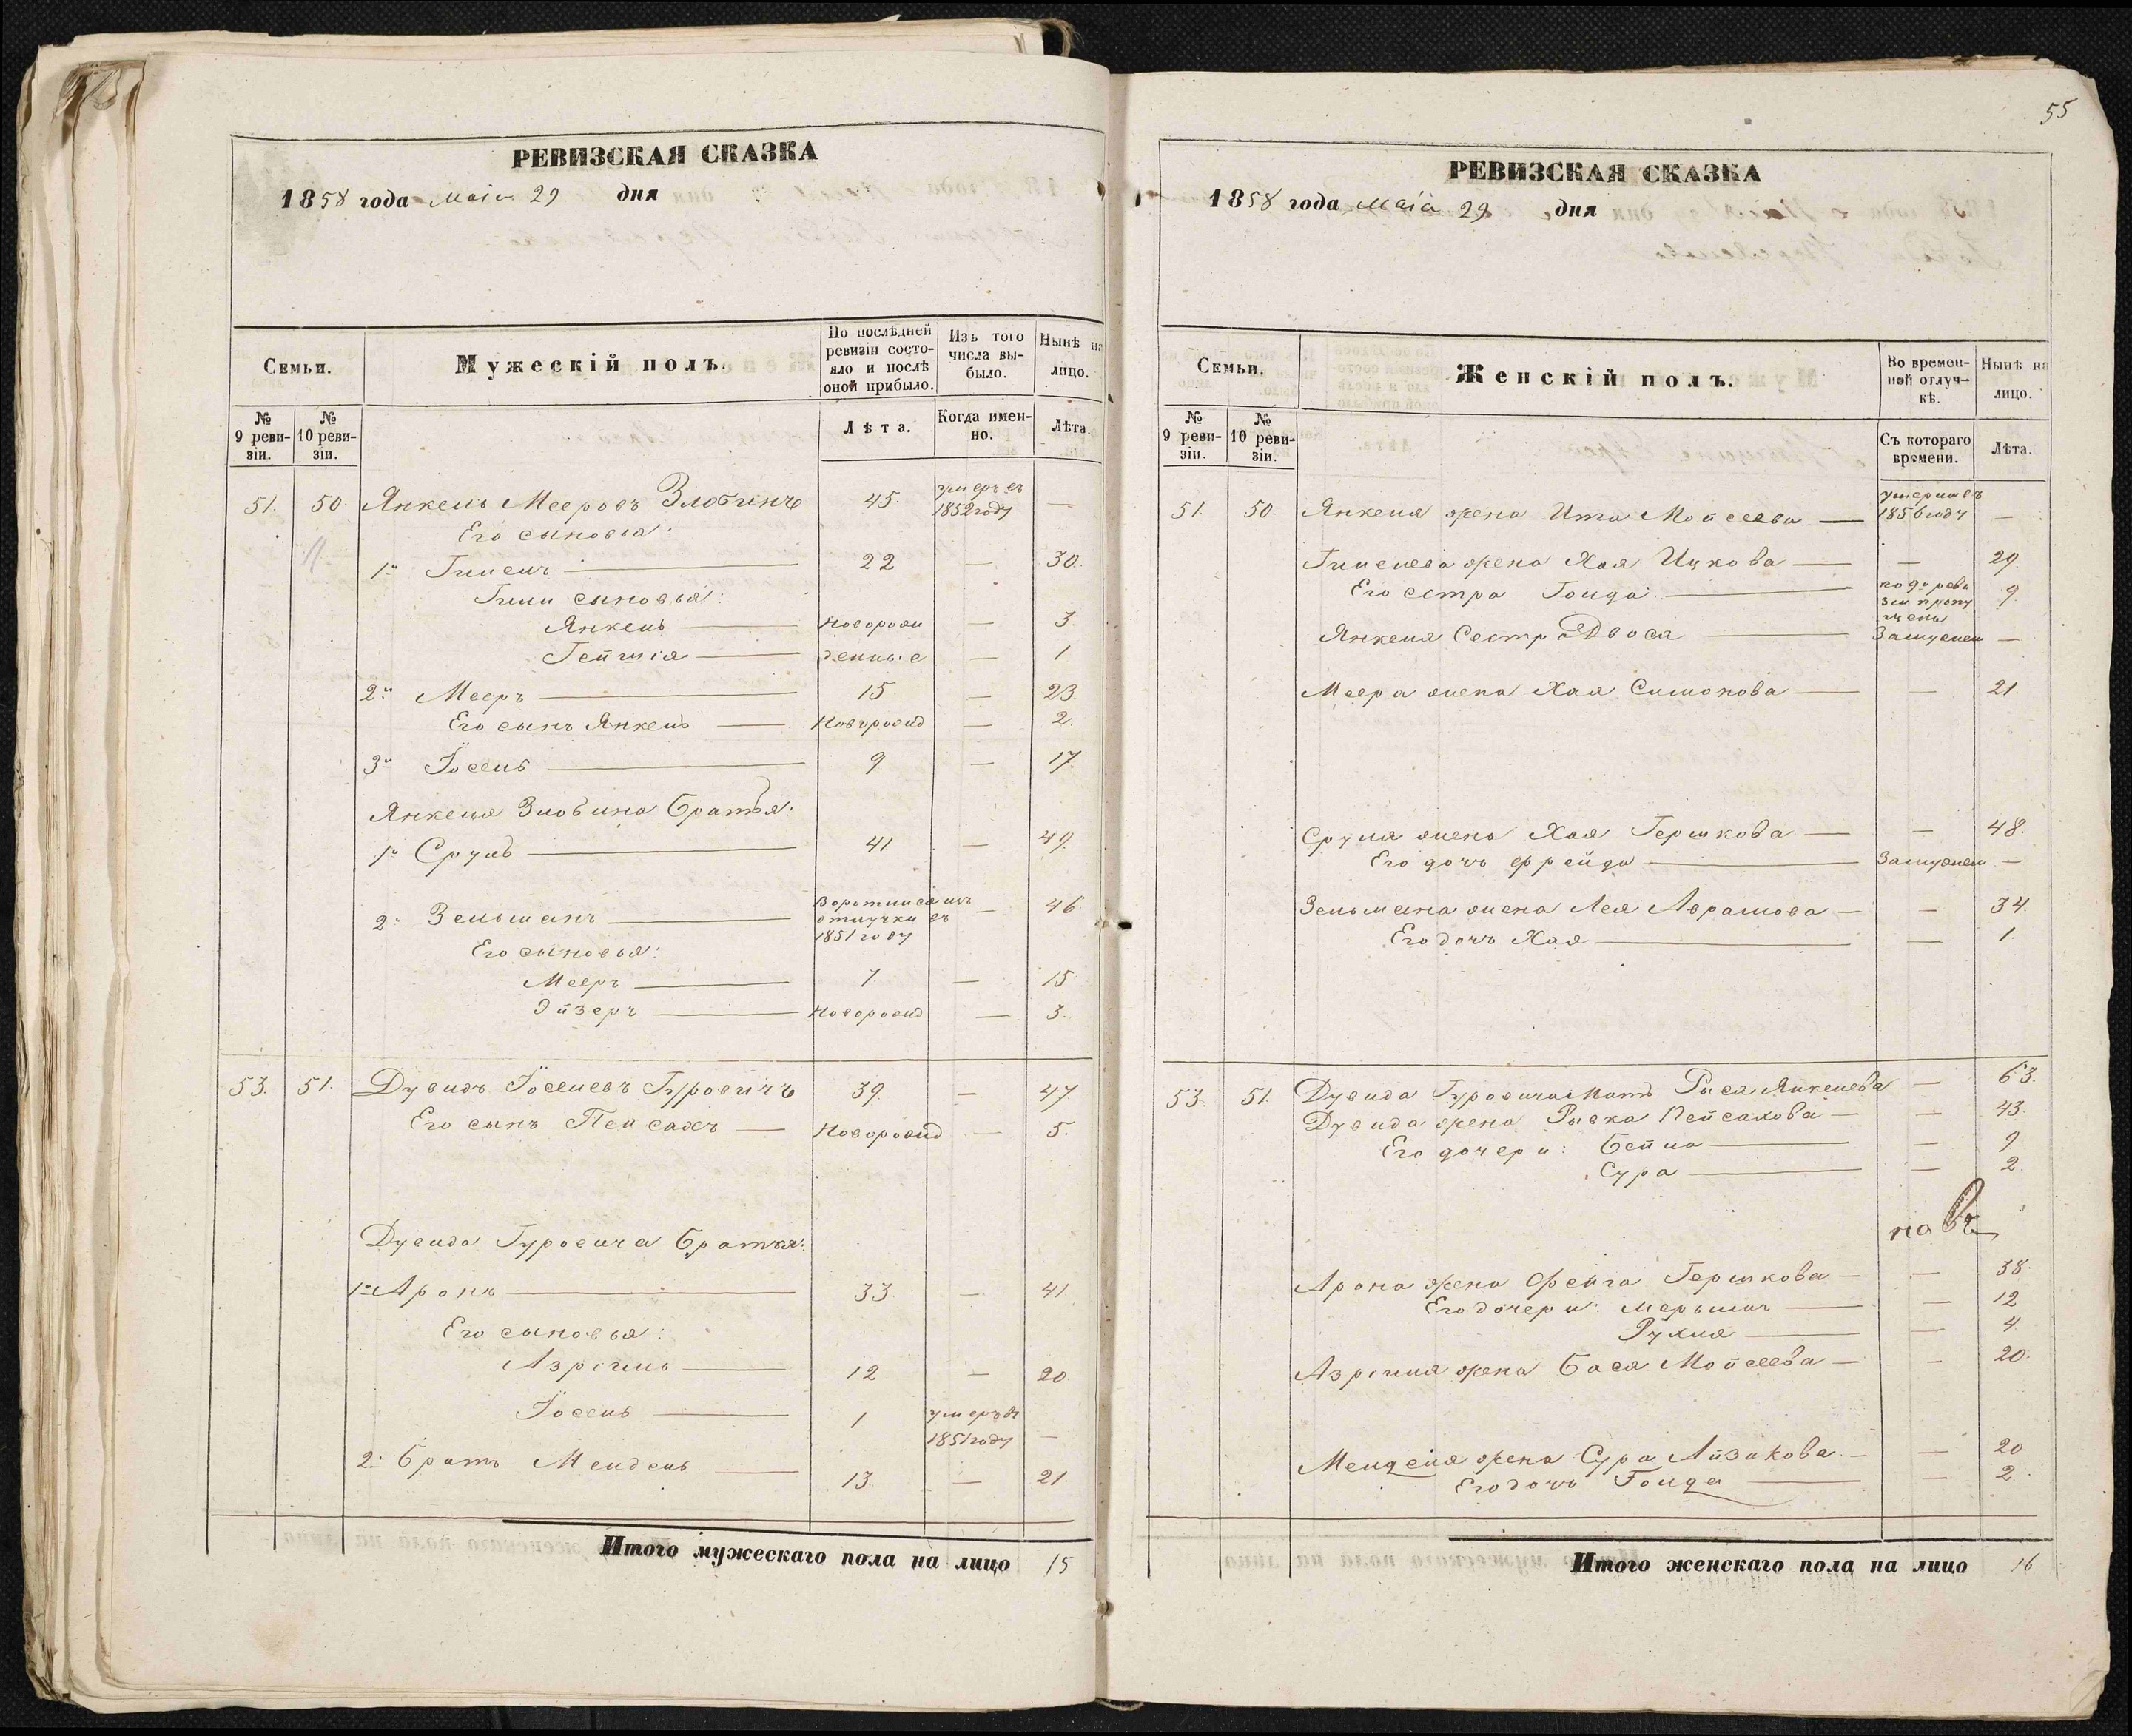 РЕВИЗСКАЯ СКАЗКА
1858 года Маія 29 дня
Семьи.
Мужескій полъ.
По послѣдней ревизіи состояло и послѣ оной прибыло.
Изъ того числа выбыло.
Нынѣ на лицо.
№ 9 ревизіи.
№ 10 ревизіи.
Лѣта.
Когда именно.
Лѣта.
51. 50. Янкель Мееровъ Злобинъ 45. умеръ въ 1852 году —
Его сыновья:
1й 22 — 30.
сыновья:
Янкель Новорож — 3.
денные — 1
2й Мееръ 15 — 23.
Его сынъ Янкель Новорожд — 2.
3й Іосель 9 — 17
Янкеля Злобина братья:
1й Сруль 41 — 49.
2й Зельманъ Воротился изъ отлучки въ 1851 году — 46
Его сыновья:
Мееръ 7. — 15
Эйзеръ Новорожд — 3.
53. 51. Дувидъ Іоселевъ Гуровичъ 39. — 47
Его сынъ Пейсахъ Новорожд — 5.
Дувида Гуровича братья:
1й Аронъ 33. — 41
Его сыновья:
Азріиль 12 — 20.
Іосель 1 умеръ въ 1851 году —
2й братъ Мендель 13. — 21.
Итого мужескаго пола на лицо 15
55
РЕВИЗСКАЯ СКАЗКА
1858 года Маія 29 дня
Семьи.
Женскій полъ.
Во временной отлучкѣ.
Нынѣ на лицо.
№ 9 ревизіи.
№ 10 ревизіи.
Съ котораго времени.
Лѣта.
51. 50. Янкеля жена Ита Мойсеева — 1856 году —
жена Хая Ицкова — — 29.
Его сестра Голда 9.
Янкеля Сестра Двося Замужем —
Меера жена Хая Симонова — — 21.
Сруля жена Хая Гершкова — — 48.
Его дочь Фрейда Замужем —
Зельмана жена Лея Абрамова — — 34.
Его дочь Хая — 1.
53. 51. Дувида Гуровича мать Рися Янкелева — 63.
Дувида жена Рывка Пейсахова — — 43.
Его дочери: Бейла — 9
Сура — 2.
Арона жена Фейга Гершкова — — 38.
Его дочери: Мерьяша — 12
Рухля — 4
Азріиля жена Бася Мойсеева — — 20.
Менделя жена Сура Айзикова — — 20
Его дочь Голда — 2.
Итого женскаго пола на лицо 16